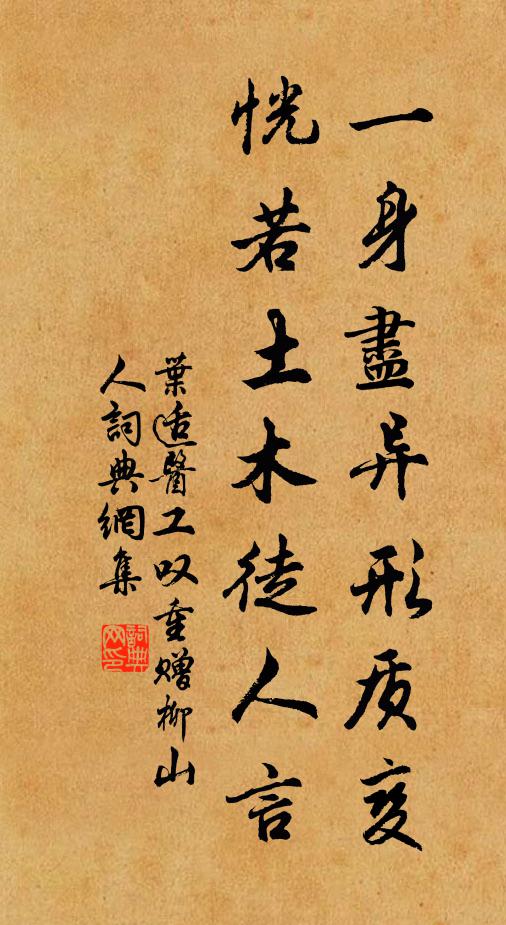 一身盡异形质变
恍若土木徒人言
葉适醫工叹重赠柳山
人詞典網集
詞典網印